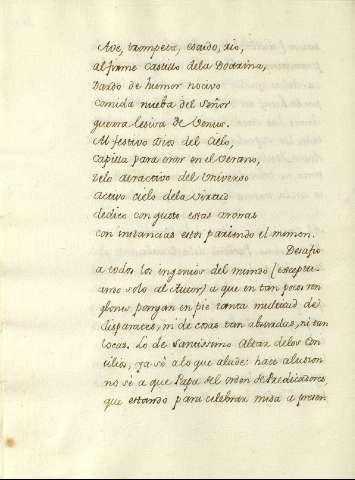 Ave, trompeta, escudo, rio,
al firme Castillo dela Doctrina,
Dardo de humor nocivo
comida nueba del Señor
guerra lesiva de Venus.
Al festivo Dios del Cielo,
Capilla para orar en el Verano,
zelo atractivo del Universo
activo cielo dela Virtud
dedico con gusto estas
con instancias estos pariendo el
Desafio
a todos los ingenios del mundo (exceptu-
amos solo al Autor) a que en tan pocos ren
glones pongan en pie tanta multitud de
disparates, ni de cosas tan absurdas, ni tan
locas. Lo de Santissimo Altar delos Con
cilios, ya sé a lo que alude: hace alusion
no sé a que Papa del orden de Predicadores,
que estando para celebrar misa a presen